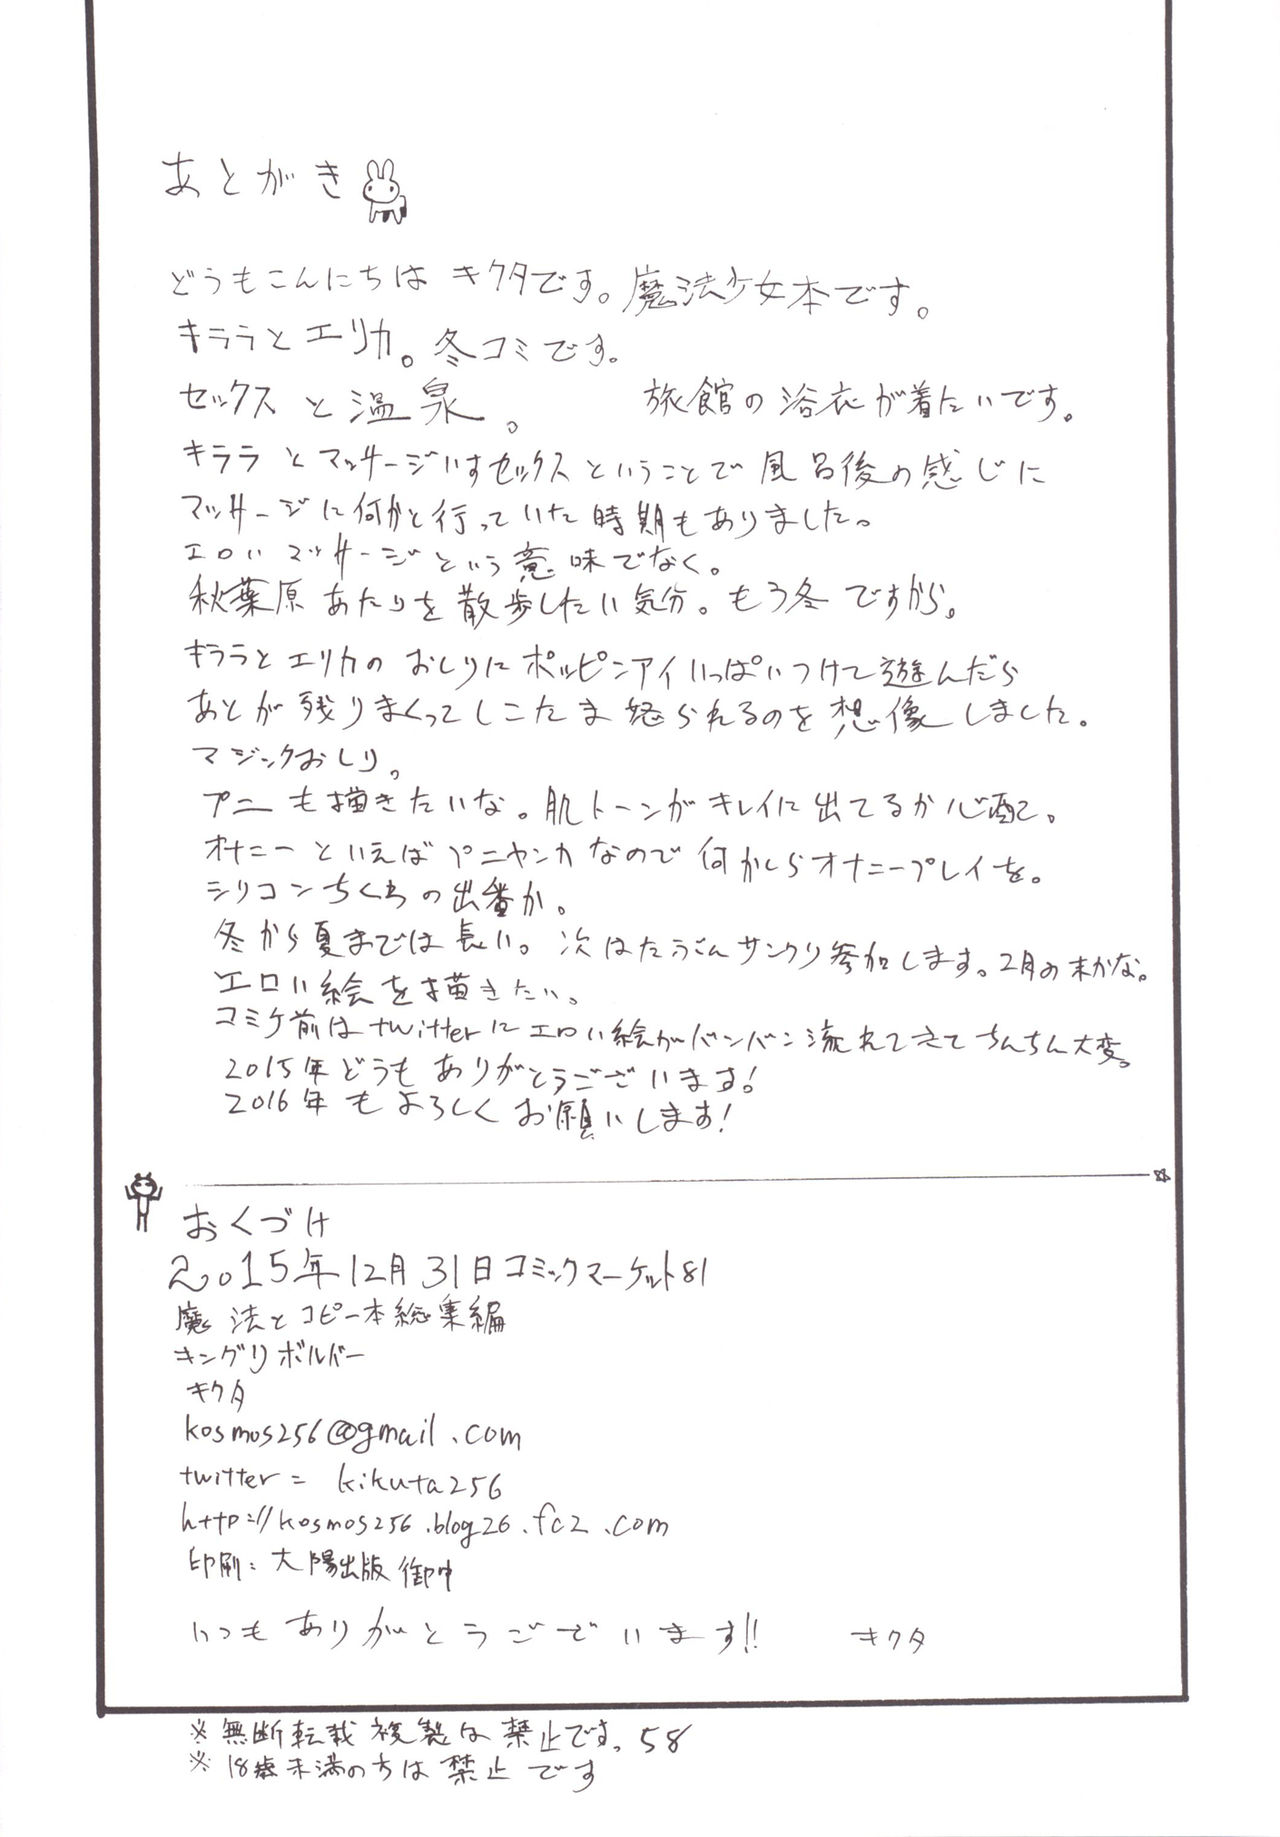 あとがき
どうもこんにちは キクタです。魔法少女本です。
キララとエリカ。冬コミです。
セックスと温泉。 旅館の浴衣が着たいです。
キララとマッサージいすセックスということで風呂後の感じに
マッサージに何かと行っていた時期もありました。
エロいマッサージという意味でなく。
秋葉原あたりを散歩したい気分。もう冬ですから。
キララとエリカのおしりにポッピンアイいっぱいつけて遊んだら
あとが残りまくってしこたま怒られるのを想像しました。
マジックおしり。
プニーも描きたいな。肌トーンがキレイに出てるか心配。
オナニーといえばプニヤンカなので何かしらオナニープレイを。
シリコンちくわの出番か。
冬から夏までは長い。次はたぶんサンクリ参加します。2月の末かな。
エロい絵を描きたい。
コミケ前はtwitterにエロい絵がバンバン流れてきてちんちん大変。
2015年どうもありがとうございます!
2016年もよろしくお願いします!
おくづけ
2015年12月31日コミックマーケット81
魔法とコピー本総集編
キングリボルバー
キクタ
kosmos256@gmail.com
twitter= kikuta256
http://kosmos256.blog26.fc2.com
印刷:大陽出版 御中
いつもありがとうございます!! キクタ
※無断転載複製は禁止です。58
※18歳未満の方は禁止です